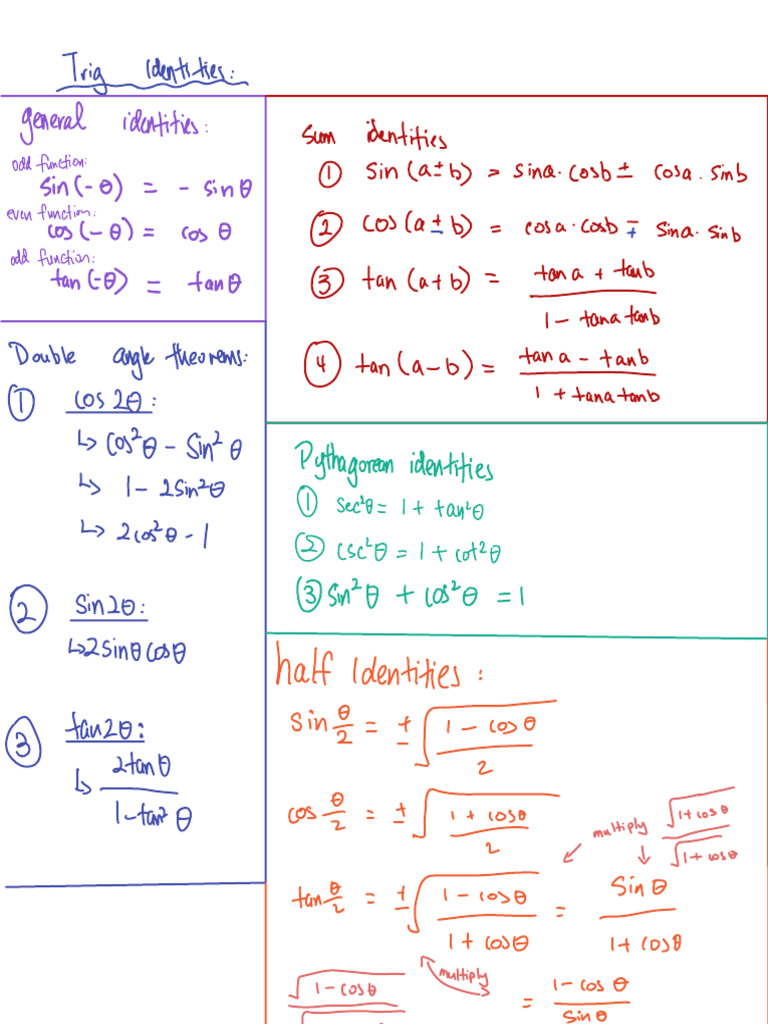 Trig Identities:
general identities:
odd function:
sin(-θ) = - sinθ
even function:
cos(-θ) = cosθ
odd function:
tan(-θ) = tanθ
Double angle theorems:
① cos2θ:
↳ cos²θ - sin²θ
↳ 1 - 2sin²θ
↳ 2cos²θ - 1
② Sin2θ:
↳ 2sinθcosθ
③ tan2θ:
↳ 2tanθ
1-tan²θ
Sum identities
① sin(a±b) = sina·cosb ± cosa·sinb
② cos(a±b) = cosa·cosb ∓ sina·sinb
③ tan(a+b) = tana + tanb
1 - tanatanb
④ tan(a-b) = tana - tanb
1 + tanatanb
Pythagorean identities
① sec²θ = 1 + tan²θ
② csc²θ = 1 + cot²θ
③ sin²θ + cos²θ = 1
half Identities:
sin θ/2 = ± √(1 - cosθ / 2)
cos θ/2 = ± √(1 + cosθ / 2)
multiply √1+cosθ
√1+cosθ
tan θ/2 = ± √(1 - cosθ / 1 + cosθ) = Sinθ / 1 + cosθ
multiply
√1-cosθ
= 1 - cosθ / sinθ